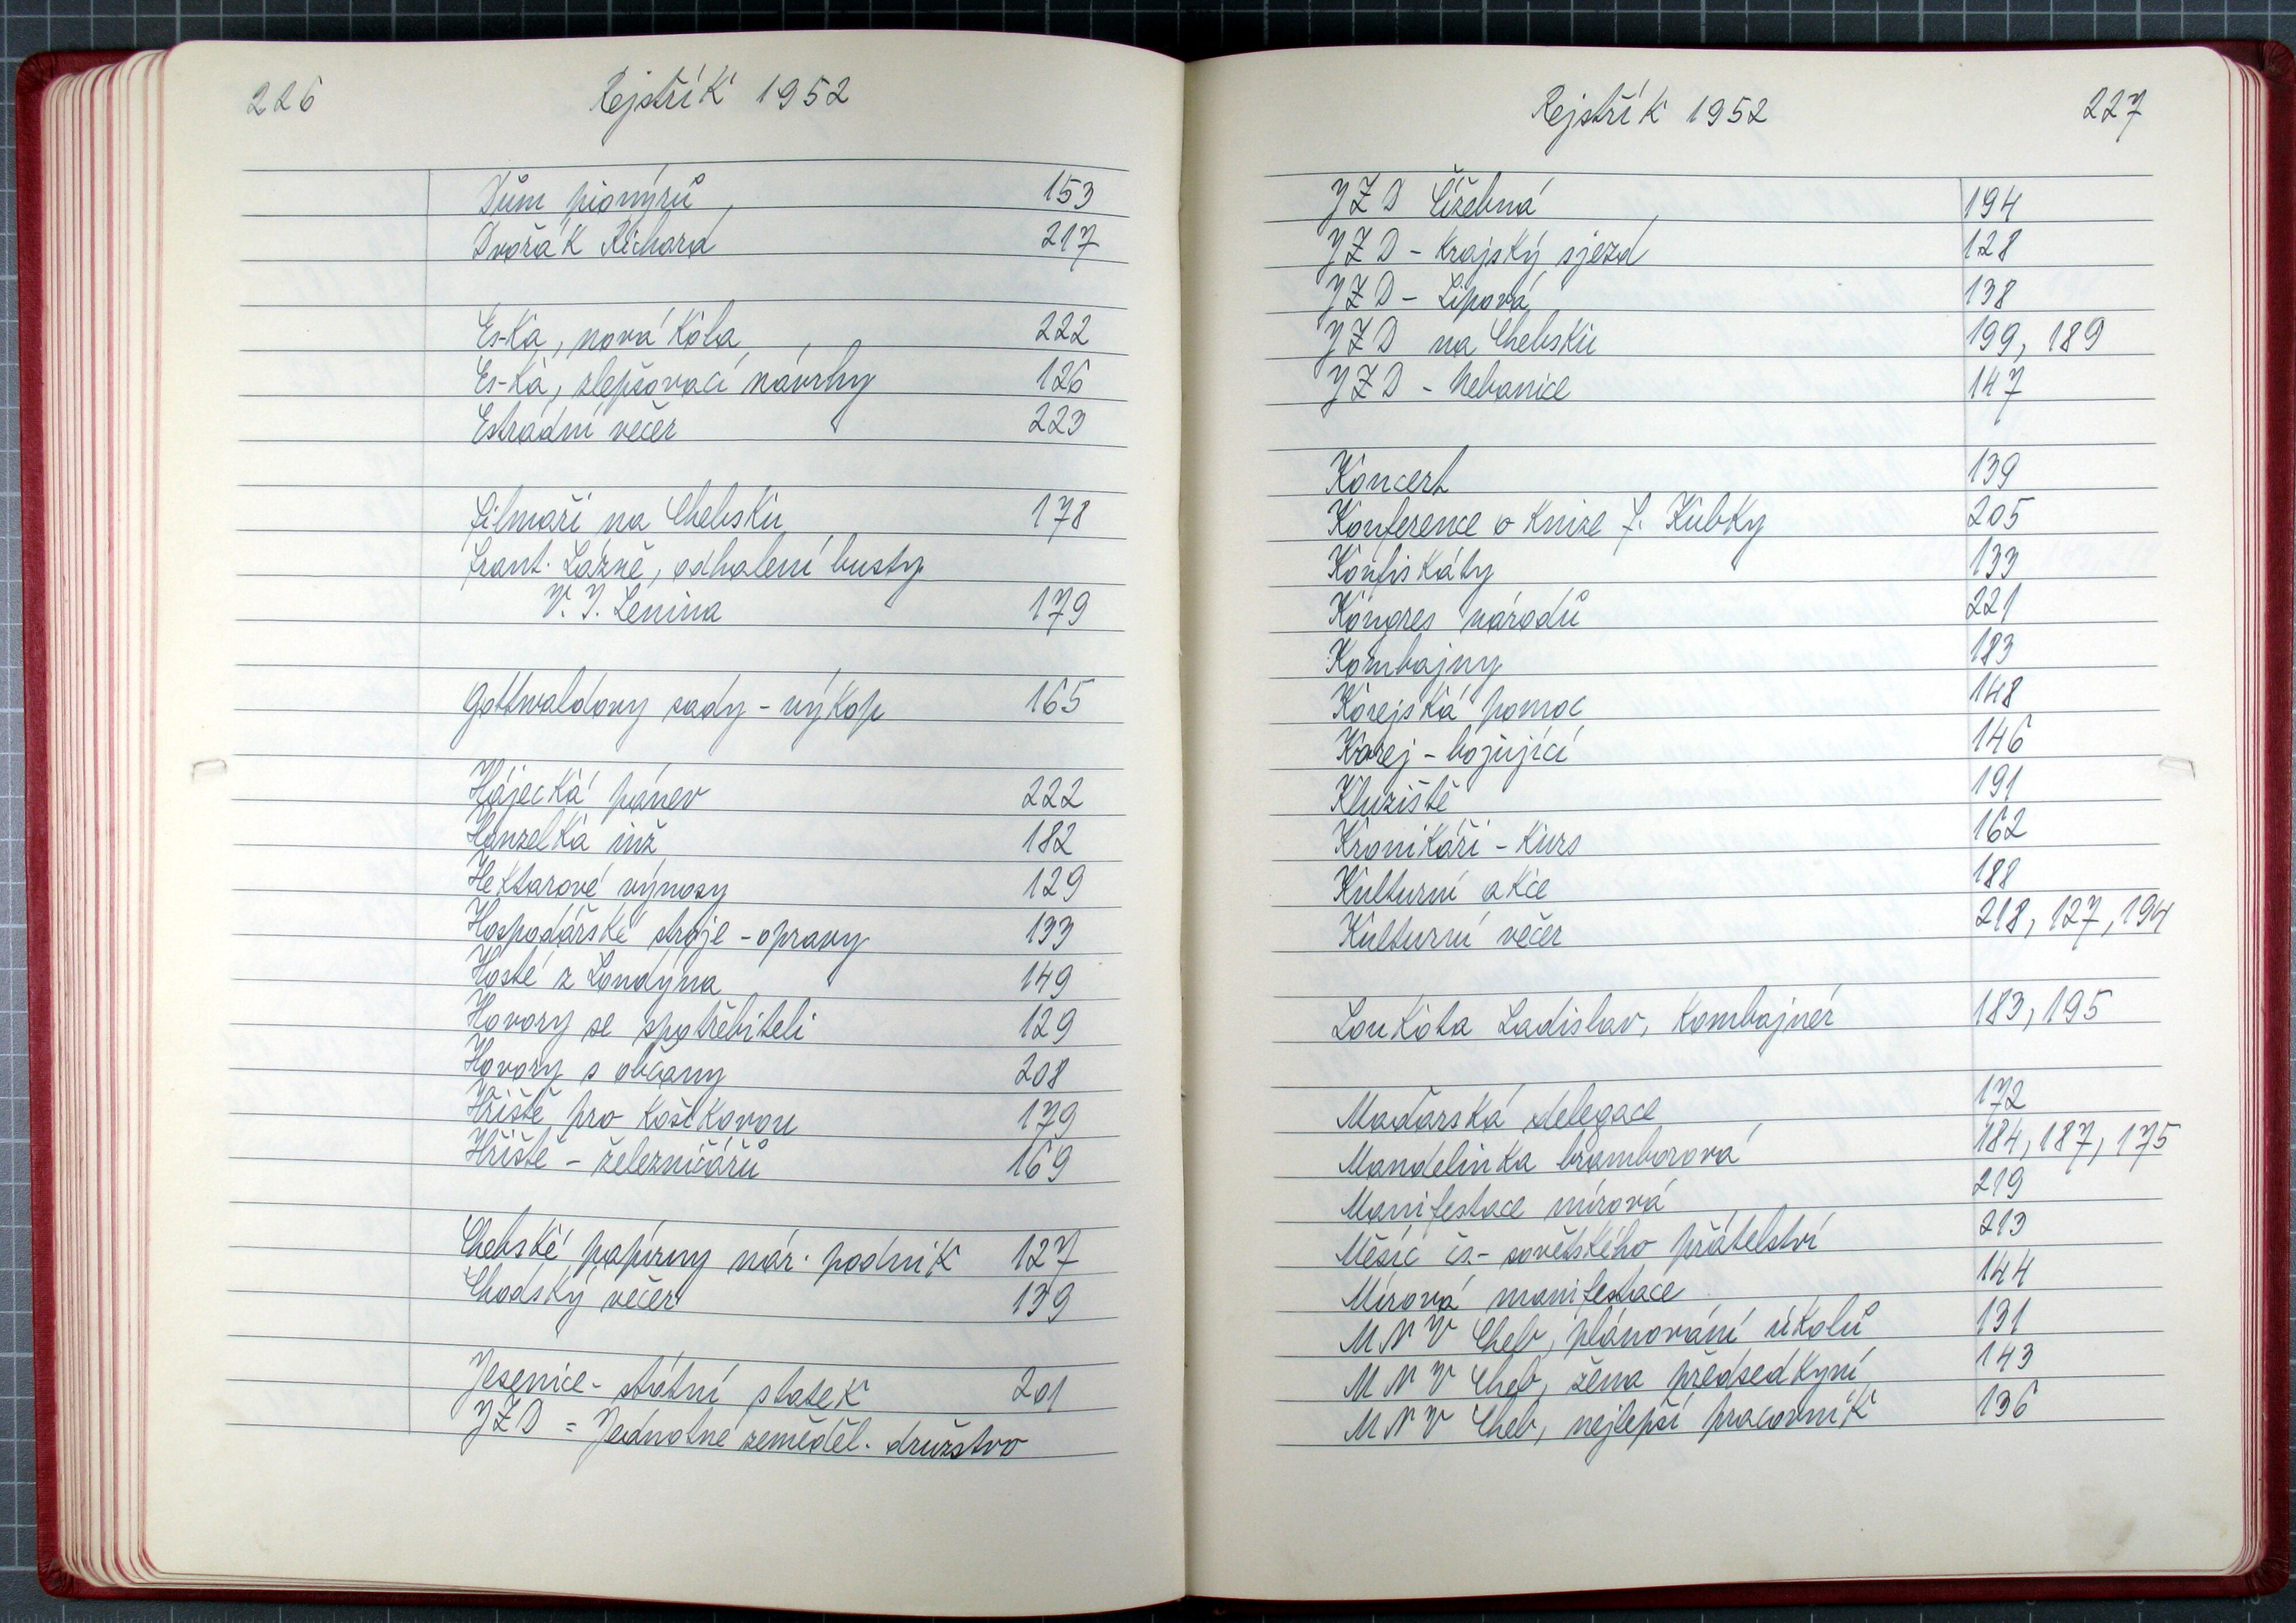 226
Rejstřík 1952
Dům pionýrů 153
Dvořák Richard 217
Es-ka, nová kola 222
Es-ka, zlepšovací návrhy 126
Estrádní večer 223
Filmaři na Chebsku 178
Frant. Lázně, odhalení busty
V. I. Lenina 179
Gottwaldovy sady - výkop 165
Hájecká pánev 222
Hanzelka inž 182
Hektarové výnosy 129
Hospodářské stroje - opravy 133
Hosté z Londýna 149
Hovory se spotřebiteli 129
Hovory s občany 208
Hřiště pro košíkovou 179
Hřiště - železničářů 169
Chebské papírny nár. podnik 127
Chodský večer 139
Jesenice - státní statek 201
JZD = Jednotné zeměděl. družstvo
Rejstřík 1952
227
JZD Čížebná 194
JZD - krajský sjezd 128
JZD - Lipová 138
JZD na Chebsku 199, 189
JZD - Nebanice 147
Koncert 139
Konference o knize F. Kubky 205
Konfiskáty 133
Kongres národů 221
Kombajny 183
Korejská pomoc 148
Korej - bojující 146
Kluziště 191
Kronikáři - kurs 162
Kulturní akce 188
Kulturní večer 218, 127, 194
Loukota Ladislav, kombajnér 183, 195
Maďarská delegace 172
Mandelinka bramborová 184, 187, 175
Manifestace mírová 219
Měsíc čs.- sovětského přátelství 213
Mírová manifestace 144
MNV Cheb, plánování úkolů 131
MNV Cheb, žena předsedkyní 143
MNV Cheb, nejlepší pracovník 136